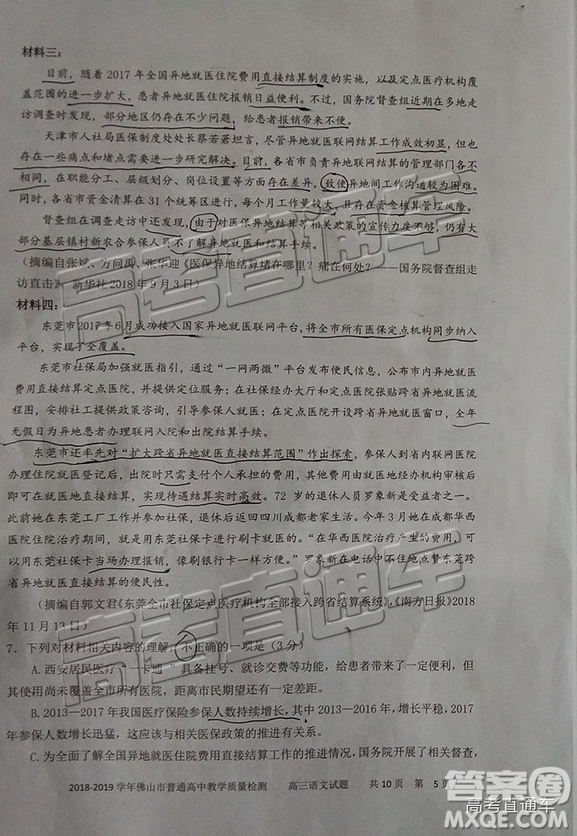 材料三：
目前，随着2017年全国异地就医住院费用直接结算制度的实施，以及定点医疗机构覆
盖范围的进一步扩大，患者异地就医住院报销日益便利。不过，国务院督查组近期在多地走
访调查时发现，部分地区仍存在不少问题，给患者报销带来不便。
天津市人社局医保制度处处长蔡若菱坦言，尽管异地就医联网结算工作成效初显，但也
存在一些痛点和堵点需要进一步研究解决。目前，各省市负责异地联网结算的管理部门各不
相同，在职能分工、层级划分、岗位设置等方面存在差异，致使异地间工作沟通较为困难。
同时，各省市资金清算在31个统筹区进行，每个月工作量较大，且存在资金核算管理风险。
督查组在调查走访中还发现，由于对医保异地结算等相关政策的宣传力度不够，仍有大
部分基层镇村新农合参保人员不了解异地就医和结算手续。
（摘编自张斌、万问禹、张华迎《医保异地结算堵在哪里？痛在何处？——国务院督查组走
访直击》，新华社2018年9月3日）
材料四：
东莞市2017年6月成功接入国家异地就医联网平台，将全市所有医保定点机构同步纳入
平台，实现了全覆盖。
东莞市社保局加强就医指引，通过“一网两微”平台发布便民信息，公布市内异地就医
费用直接结算定点医院，并提供定位服务；在社保经办大厅和定点医院张贴跨省异地就医流
程图，安排社工提供政策咨询和引导服务；在定点医院开设跨省异地就医窗口，全年
无假日为异地患者办理联网入院和出院结算手续。
东莞市还率先对“扩大跨省异地就医直接结算范围”作出探索，参保人到省内联网医院
办理住院就医登记后，出院时只需支付个人承担的费用，其他费用由就医地经办机构审核后
即可在就医地直接结算，实现待遇结算实时高效。72岁的退休人员罗象新是受益者之一。
此前她在东莞工厂工作并参加社保，退休后回到四川成都老家生活。今年3月她在成都华西
医院住院治疗期间，使用东莞社保卡进行刷卡就医的医疗费用结算。“在华西医院治疗的费用，可
以用东莞社保卡当场办理报销，像刷银行卡一样方便。”罗象新在电话中不住地点赞东莞跨
省异地就医直接结算的便民性。
（摘编自郭文君《东莞全市社保定点医疗机构全部接入跨省结算系统》，《南方日报》2018
年11月13日）
7．下列对材料相关内容的理解，不正确的一项是（3分）
A.西安居民医疗“一卡通”具备挂号、就诊交费等功能，给患者带来了一定便利，但其
使用尚未覆盖全市所有医院，距离市民期望还有一定差距。
B.2013—2017年我国医疗保险参保人数持续增长，其中2013—2016年，增长平稳，2017
年参保人数增长迅速，这应该与相关医保政策的推进有关系。
C.为了解全国异地就医住院费用直接结算工作的推进情况，国务院开展了相关督查，
2018-2019学年佛山市普通高中教学质量检测 高三语文试题 共10页 第5页
高考直通车
答案圈
高考直通车